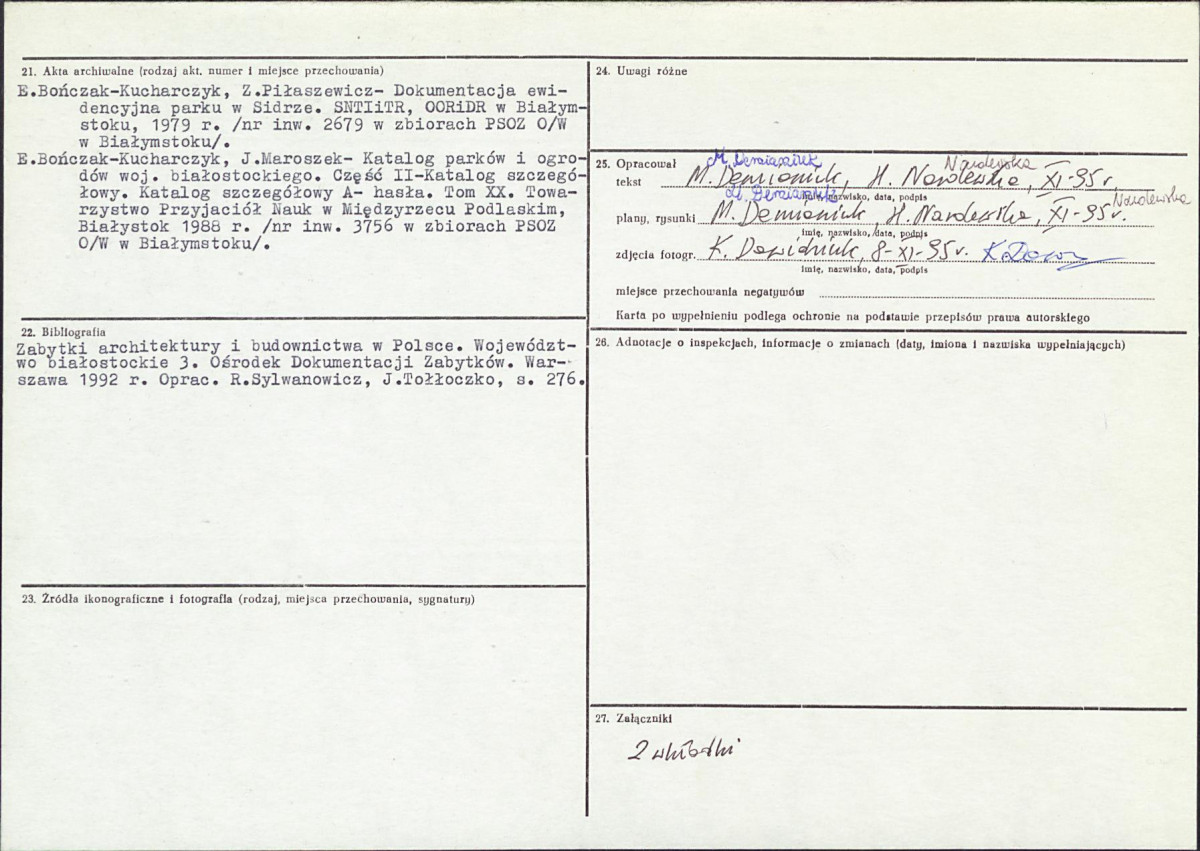 21. Akta archiwalne (rodzaj akt, numer i miejsce przechowania)
E.Bończak-Kucharczyk, Z.Piłaszewicz- Dokumentacja ewi-
dencyjna parku w Sidrze. SNTIiTR, OORiDR w Białym-
stoku, 1979 r. /nr inw. 2679 w zbiorach PSOZ O/W
w Białymstoku/.
E.Bończak-Kucharczyk, J.Maroszek- Katalog parków i ogro-
dów woj. białostockiego. Część II-Katalog szczegó-
łowy. Katalog szczegółowy A- hasła. Tom XX. Towa-
rzystwo Przyjaciół Nauk w Międzyrzecu Podlaskim,
Białystok 1988 r. /nr inw. 3756 w zbiorach PSOZ
O/W w Białymstoku/.
22. Bibliografia
Zabytki architektury i budownictwa w Polsce. Województ-
wo białostockie 3. Ośrodek Dokumentacji Zabytków. War-
szawa 1992 r. Oprac. R.Sylwanowicz, J.Tołłoczko, s. 276.
23. Źródła ikonograficzne i fotografia (rodzaj, miejsca przechowania, sygnatury)
24. Uwagi różne
25. Opracował
M. Demianiuk Nardewska
tekst M. Demianiuk, H. Nardewska, XI-95 r.
imię, nazwisko, data, podpis
M. Demianiuk Nardewska
plany, rysunki M. Demianiuk, H. Nardewska, XI-95 r.
imię, nazwisko, data, podpis
zdjęcia fotogr. K. Dawidziuk, 8-XI-95 r.
imię, nazwisko, data, podpis
miejsce przechowania negatywów
Karta po wypełnieniu podlega ochronie na podstawie przepisów prawa autorskiego
26. Adnotacje o inspekcjach, informacje o zmianach (daty, imiona i nazwiska wypełniających)
27. Załączniki
2 wkładki